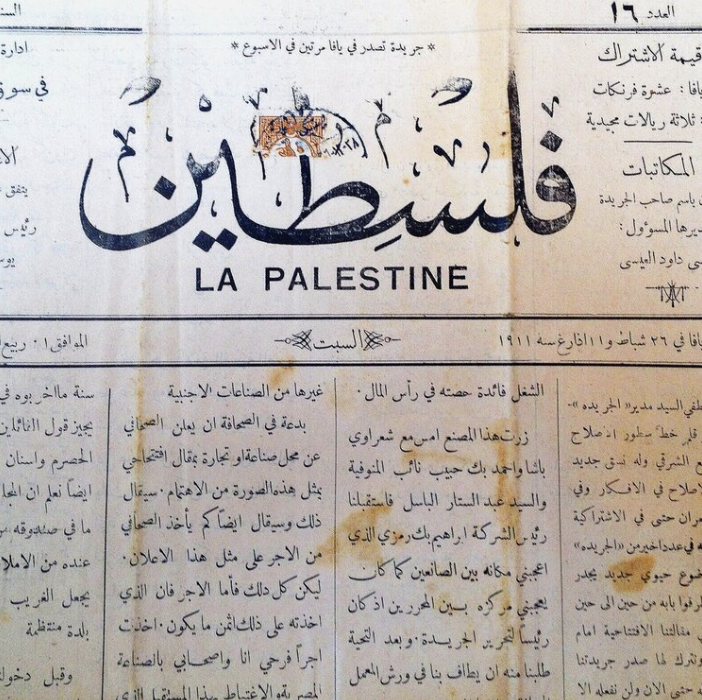 العدد ١٦
السنة
* جريدة تصدر في يافا مرتين في الاسبوع *
قيمة الاشتراك
يافا : عشرة فرنكات
: ثلاثة ريالات مجيدية
المكاتبات
باسم صاحب الجريدة
مديرها المسؤول :
داود العيسى
فلسطين
LA PALESTINE
ادارة
في سوق
يتفق
رئيس
يافا في ٢٦ شباط و ١١ اذار غ سنه ١٩١١
السبت
الموافق ١٠ ربيع
السيد مدير « الجريده »
خط سطور اصلاح
الشرقي وله نسق جديد
لاصلاح في الافكار وفي
حتى في الاشتراكية
في عدد اخير من «الجريده»
موضوع حيوي جديد يجدر
بابه من حين الى حين
مقالتنا الافتتاحية امام
ونترك لها صدر جريدتنا
حتى الان ولن نفعله الا
الشغل فائدة حصته في رأس المال ·
زرت هذا المصنع امس مع شعراوي
باشا واحمد بك حبيب نائب المنوفية
والسيد عبد الستار الباسل فاستقبلنا
رئيس الشركة ابراهيم بك رمزي الذي
اعجبني مكانه بين الصانعين كما كان
يعجبني مركزه بين المحررين اذ كان
رئيساً لتحرير الجريدة · وبعد التحية
طلبنا منه ان يطاف بنا في ورش المعمل
غيرها من الصناعات الاجنبية
بدعة في الصحافة ان يعلن الصحافي
عن محل صناعة او تجارة بمقال افتتاحي
بمثل هذه الصورة من الاهتمام · سيقال
ذلك وسيقال ايضاً كم يأخذ الصحافي
من الاجر على مثل هذا الاعلان ·
ليكن كل ذلك فأما الاجر فان الذي
اخذته على ذلك اثمن ما يكون · اخذت
اجراً فرحي انا واصحابي بالصناعة
المصرية والاغتباط بهذا المستقبل الذي
سنة ما اخربوه في
يجيز قول القائلين
الحصرم واسنان
ايضاً نعلم ان
ما في صندوقه من
عنده من
يجعل الغريب
بلدة منتظمة
وقبل دخول